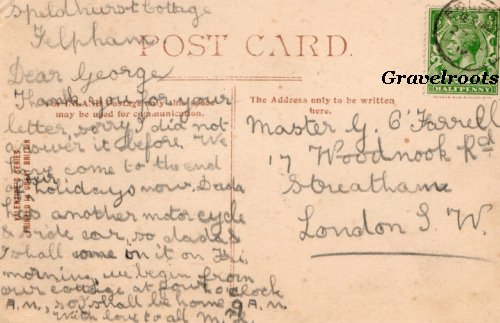 Speldhurst Cottage
Felpham
POST CARD.
Dear George
Thank you for your
FOR INLAND Postage only this space
may be used for communication.
letter, sorry I did not
answer it before. We
have come to the end
of our holidays now. Dada
has another motor cycle
& side car, so dada &
I shall come on it on Fri.
morning, we begin from
our cottage at four o'clock
A.M., so I shall be home 9 A.M.
With love to all M.
VALENTINE'S SERIES
PRINTED IN GREAT BRITAIN
The Address only to be written
here.
Master G. O'Farrell
17 Woodnook Rd
Streatham
London S. W.
HALFPENNY
Gravelroots